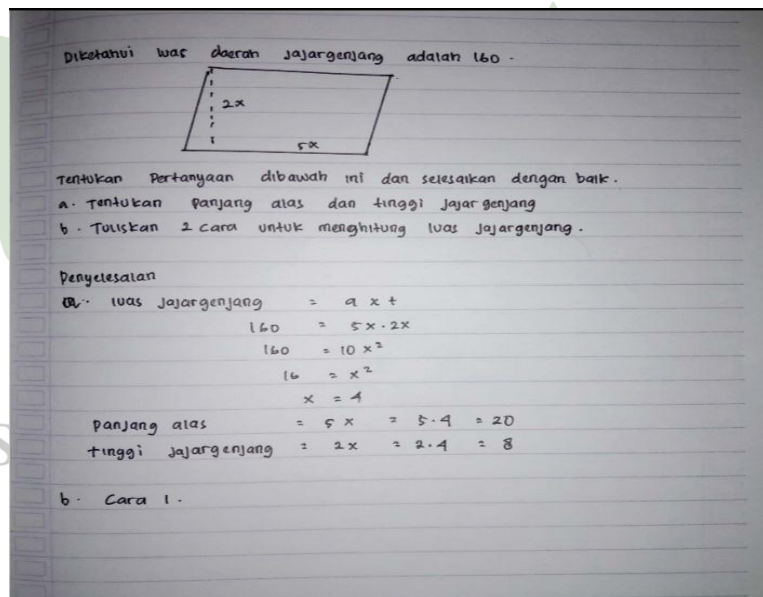 Diketahui luas daerah jajargenjang adalah 160.
2x
5x
Tentukan Pertanyaan dibawah ini dan selesaikan dengan baik.
a. Tentukan Panjang alas dan tinggi jajargenjang
b. Tuliskan 2 cara untuk menghitung luas jajargenjang.
Penyelesaian
a. luas jajargenjang = a x t
160 = 5x . 2x
160 = 10 x²
16 = x²
x = 4
Panjang alas = 5x = 5.4 = 20
tinggi jajargenjang = 2x = 2.4 = 8
b. Cara 1.